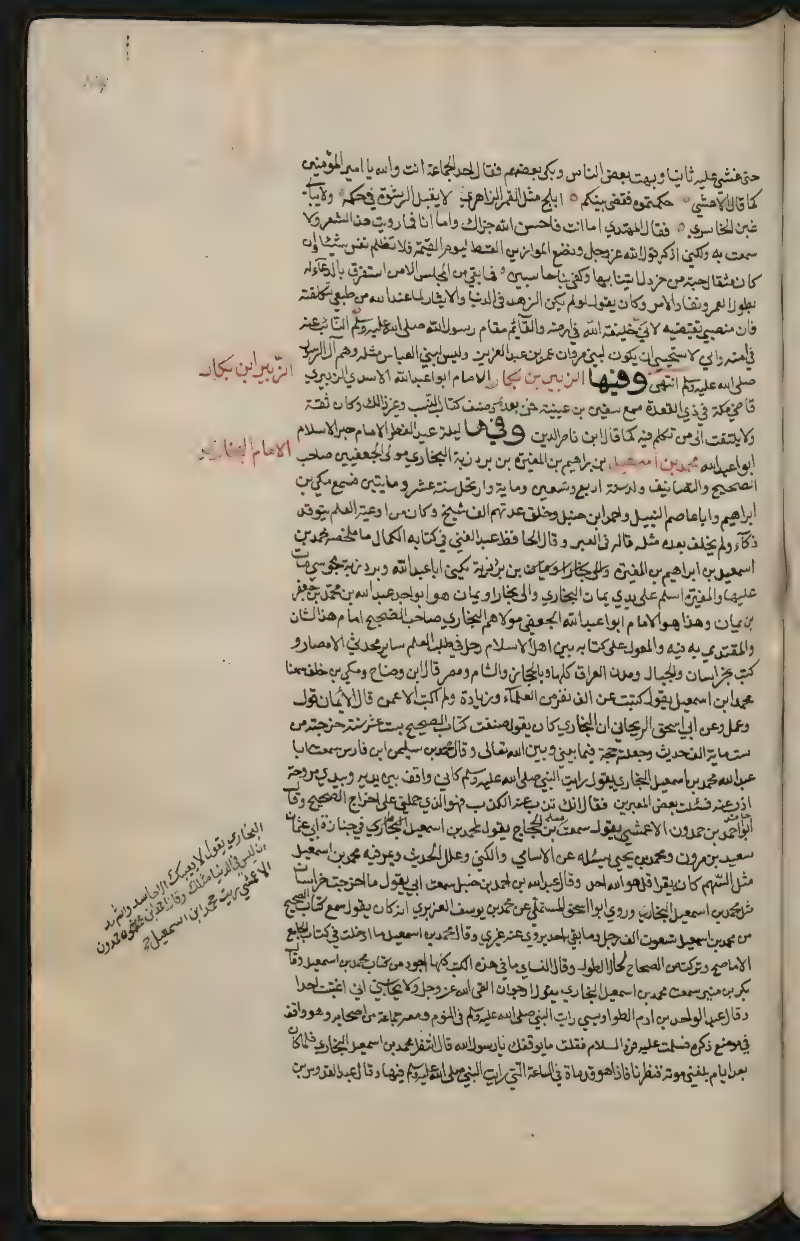 حتى غشي عليه ثانيا وبهت بعض الناس وبكى بعضهم فقال احد الجماعة انت والله يا امير المؤمنين
كما قال الاعشى حكمتموه فقضى بينكم ابلج مثل القمر الزاهر لا يقبل الرشوة في حكمه ولا يبالي
غبن الخاسر فقال المهتدي اما انت فاحسن الله جزاك واما انا فما رويت هذا الشعر ولا
سمعت به ولكني اذكر قول الله عز وجل ونضع الموازين القسط ليوم القيمة فلا تظلم نفس شيئا وان
كان مثقال حبة من خردل اتينا بها وكفى بنا حاسبين فما بقي من المجلس الا من استغرق بالدعاء له
بطول العمر ونفاد الامر وكان يقول لو لم يكن الزهد في الدنيا والايثار لما عند الله من طبعي لتكلفته
فان منصبي يقتضيه لاني خليفة الله في ارضه والقائم مقام رسول الله صلى الله عليه وسلم النائب عنه
في امته واني لاستحيي ان يكون لبني مروان عمر بن عبد العزيز وليس لبني العباس مثله وهم آل الرسول
صلى الله عليه وسلم انتهى وفيها الزبير بن بكار الامام ابو عبد الله الاسدي الزبيري
الزبير ابن بكار
قاضي مكة في ذي القعدة سمع سفين بن عيينة فمن بعده وصنف كتاب النسب وغير ذلك وكان ثقة
ولا يلتفت الى من تكلم فيه كما قال ابن ناصر الدين وفيها ليلة عيد الفطر الامام حبر الاسلام
ابو عبد الله محمد بن اسمعيل بن ابراهيم بن المغيرة بن بردزبة البخاري مولى الجعفيين صاحب
الامام البخاري
الصحيح والتصانيف ولد سنة اربع وتسعين وماية وارتحل سنة عشر ومايتين فسمع مكي بن
ابراهيم وابا عاصم النبيل واحمد ابن حنبل وخلق عدتهم الف شيخ وكان من اوعية العلم يتوقد
ذكاء ولم يخلف بعده مثله قاله في العبر وقال الحافظ عبد الغني في كتابه الكمال ما ملخصه محمد بن
اسمعيل بن ابراهيم بن المغيرة بن بردزبة يكنى ابا عبد الله وبردزبة مجوسي مات
عليها والمغيرة اسلم على يدي يمان البخاري والي بخارا ويمان هو ابو جد عبد الله بن محمد بن جعفر
بن يمان وهذا هو الامام ابو عبد الله الجعفي مولاهم البخاري صاحب الصحيح امام هذا الشان
والمقتدى به فيه والمعول على كتابه بين اهل الاسلام رحل في طلب العلم ساير محدثي الامصار و
كتب بخراسان والجبال ومدن العراق كلها وبالحجاز والشام ومصر قال ابن وضاح ومكي بن خلف سمعنا
محمد ابن اسمعيل يقول كتبت عن الف نفر من العلماء وزيادة ولم اكتب الا عمن قال الايمان قول
وعمل وعن ابي اسحق الريحاني ان البخاري كان يقول صنفت كتاب الصحيح بست عشر سنة خرجته من
ستماية الف حديث وجعلته حجة فيما بيني وبين الله تعالى وقال محمد بن سليمن ابن فارس سمعت ابا
عبد الله محمد بن اسمعيل البخاري يقول رايت النبي صلى الله عليه وسلم كاني واقف بين يديه وبيدي مروحة
اذب عنه فسئلت بعض المعبرين فقال انك تذب عنه الكذب فهو الذي حملني على اخراج الصحيح وقال
ابو احمد بن حمدون الاعمشي يقول سمعت مسلم بن الحجاج يقول لمحمد بن اسمعيل البخاري في جنازة ابي عثمان
سعيد بن مرون ومحمد بن يحيى يسئله عن الاسامي والكنى وعلل الحديث ويمر فيه محمد بن اسمعيل
مثل السهم كان يقرا قل هو الله احد وقال عبد الله بن احمد بن حنبل سمعت ابي يقول ما اخرجت خراسان
مثل محمد بن اسمعيل البخاري وروي ابو اسحق المستملي عن محمد بن يوسف الفربري انه كان يقول سمع كتاب الصحيح
من محمد بن اسمعيل تسعون الف رجل وما بقي احد يروي عنه غيري وقال محمد بن اسمعيل ما ادخلت في كتاب الجامع
الا ما صح وتركت من الصحاح لحال الطول وقال النسايي ما في هذه الكتب كلها اجود من كتاب محمد بن اسمعيل وقال
بكر بن منير سمعت محمد بن اسمعيل البخاري يقول ارجو ان القى الله عز وجل ولا يحاسبني اني اغتبت احدا
وقال عبد الواحد بن ادم الطواويسي رايت النبي صلى الله عليه وسلم في النوم ومعه جماعة من اصحابه وهو واقف
في موضع ذكره فسلمت عليه فرد السلام فقلت ما يوقفك يا رسول الله قال انتظر محمد بن اسمعيل البخاري فلما كان
بعد ايام بلغني موته فنظرنا فاذا هو قد مات في الساعة التي رايت النبي صلى الله عليه وسلم فيها وقال عبد القدوس بن
البخاري يقول لا يعيبك الا حاسد واشهد
ان ليس في الدنيا مثلك وقال احمد بن حمدون
الاعمشي رايت محمد ابن اسمعيل